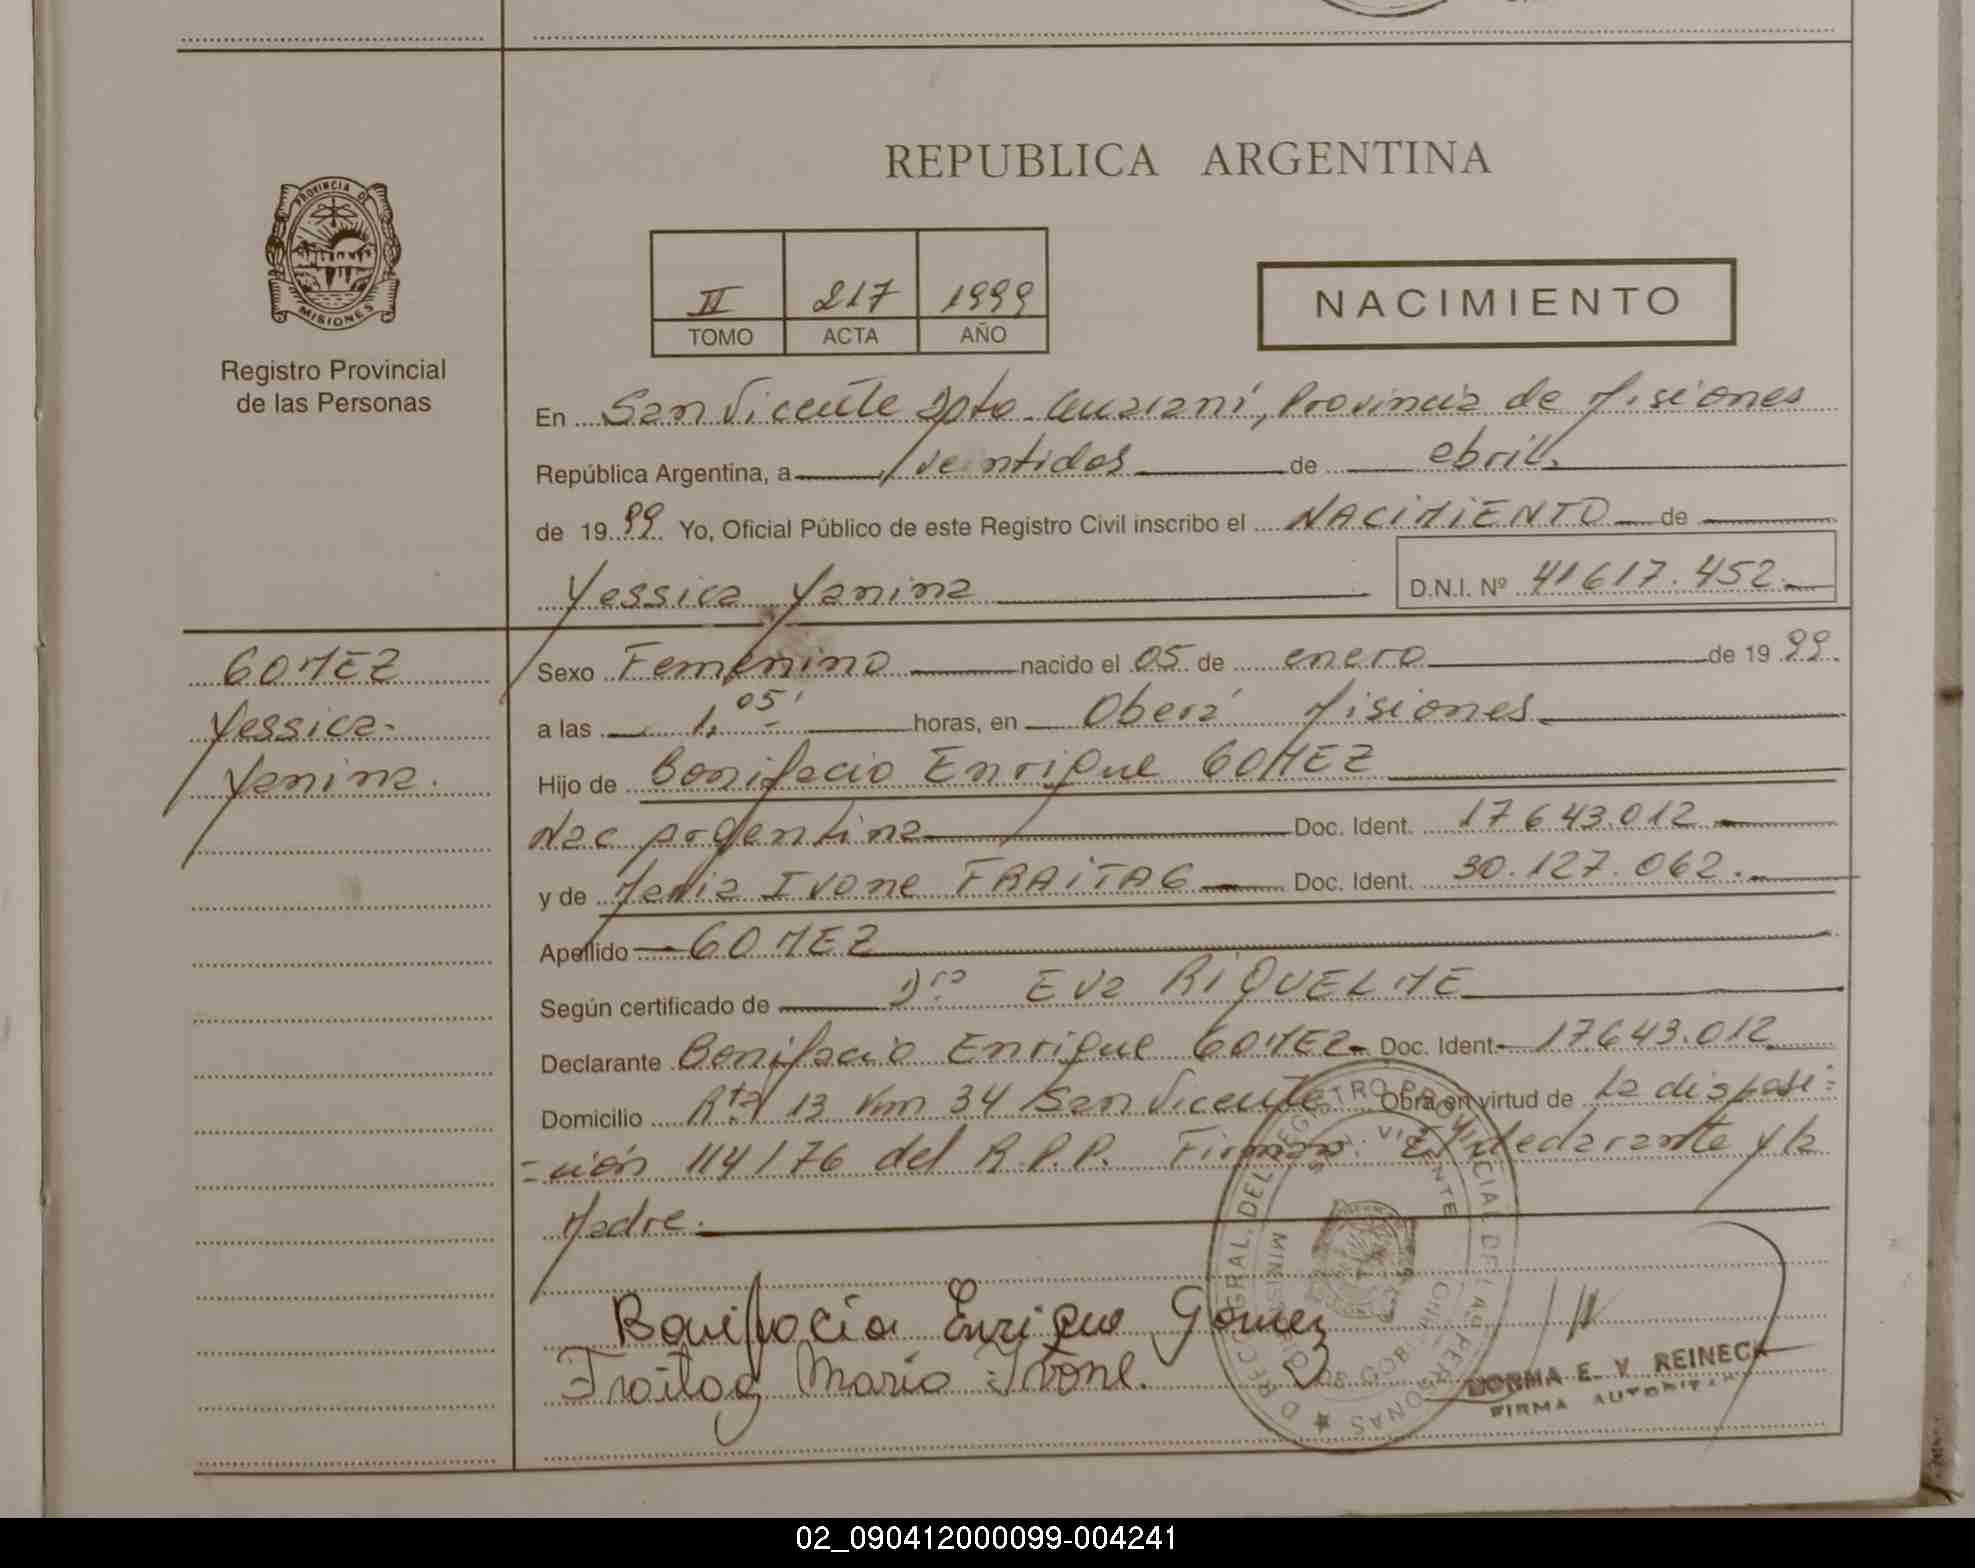 PROVINCIA DE
MISIONES
Registro Provincial
de las Personas
REPUBLICA ARGENTINA
II 217 1999
TOMO ACTA AÑO
NACIMIENTO
En San Vicente Dpto. Guaraní, Provincia de Misiones
República Argentina, a veintidos de abril
de 1999 Yo, Oficial Público de este Registro Civil inscribo el NACIMIENTO de
Yessica Yanina D.N.I. Nº 41617.452.
GOMEZ
Yessica-
Yanina.
Sexo Femenino nacido el 05 de enero de 1999.
a las 1,05' horas, en Oberá Misiones
Hijo de Bonifacio Enrique GOMEZ
Nac argentina Doc. Ident. 17643.012
y de Maria Ivone FRAITAG Doc. Ident. 30.127.062.
Apellido GOMEZ
Según certificado de Dra Eva RIQUELME
Declarante Bonifacio Enrique GOMEZ Doc. Ident. 17.643.012
Domicilio Rta 13 Km 34 San Vicente Obra en virtud de la disposi=
=ción 114/76 del R.P.P. Firman: El declarante y la
Madre.
Bonifacio Enrique Gomez
Fraitag Maria Ivone.
NORMA E. V. REINECK
FIRMA AUTORIZADA
02_090412000099-004241